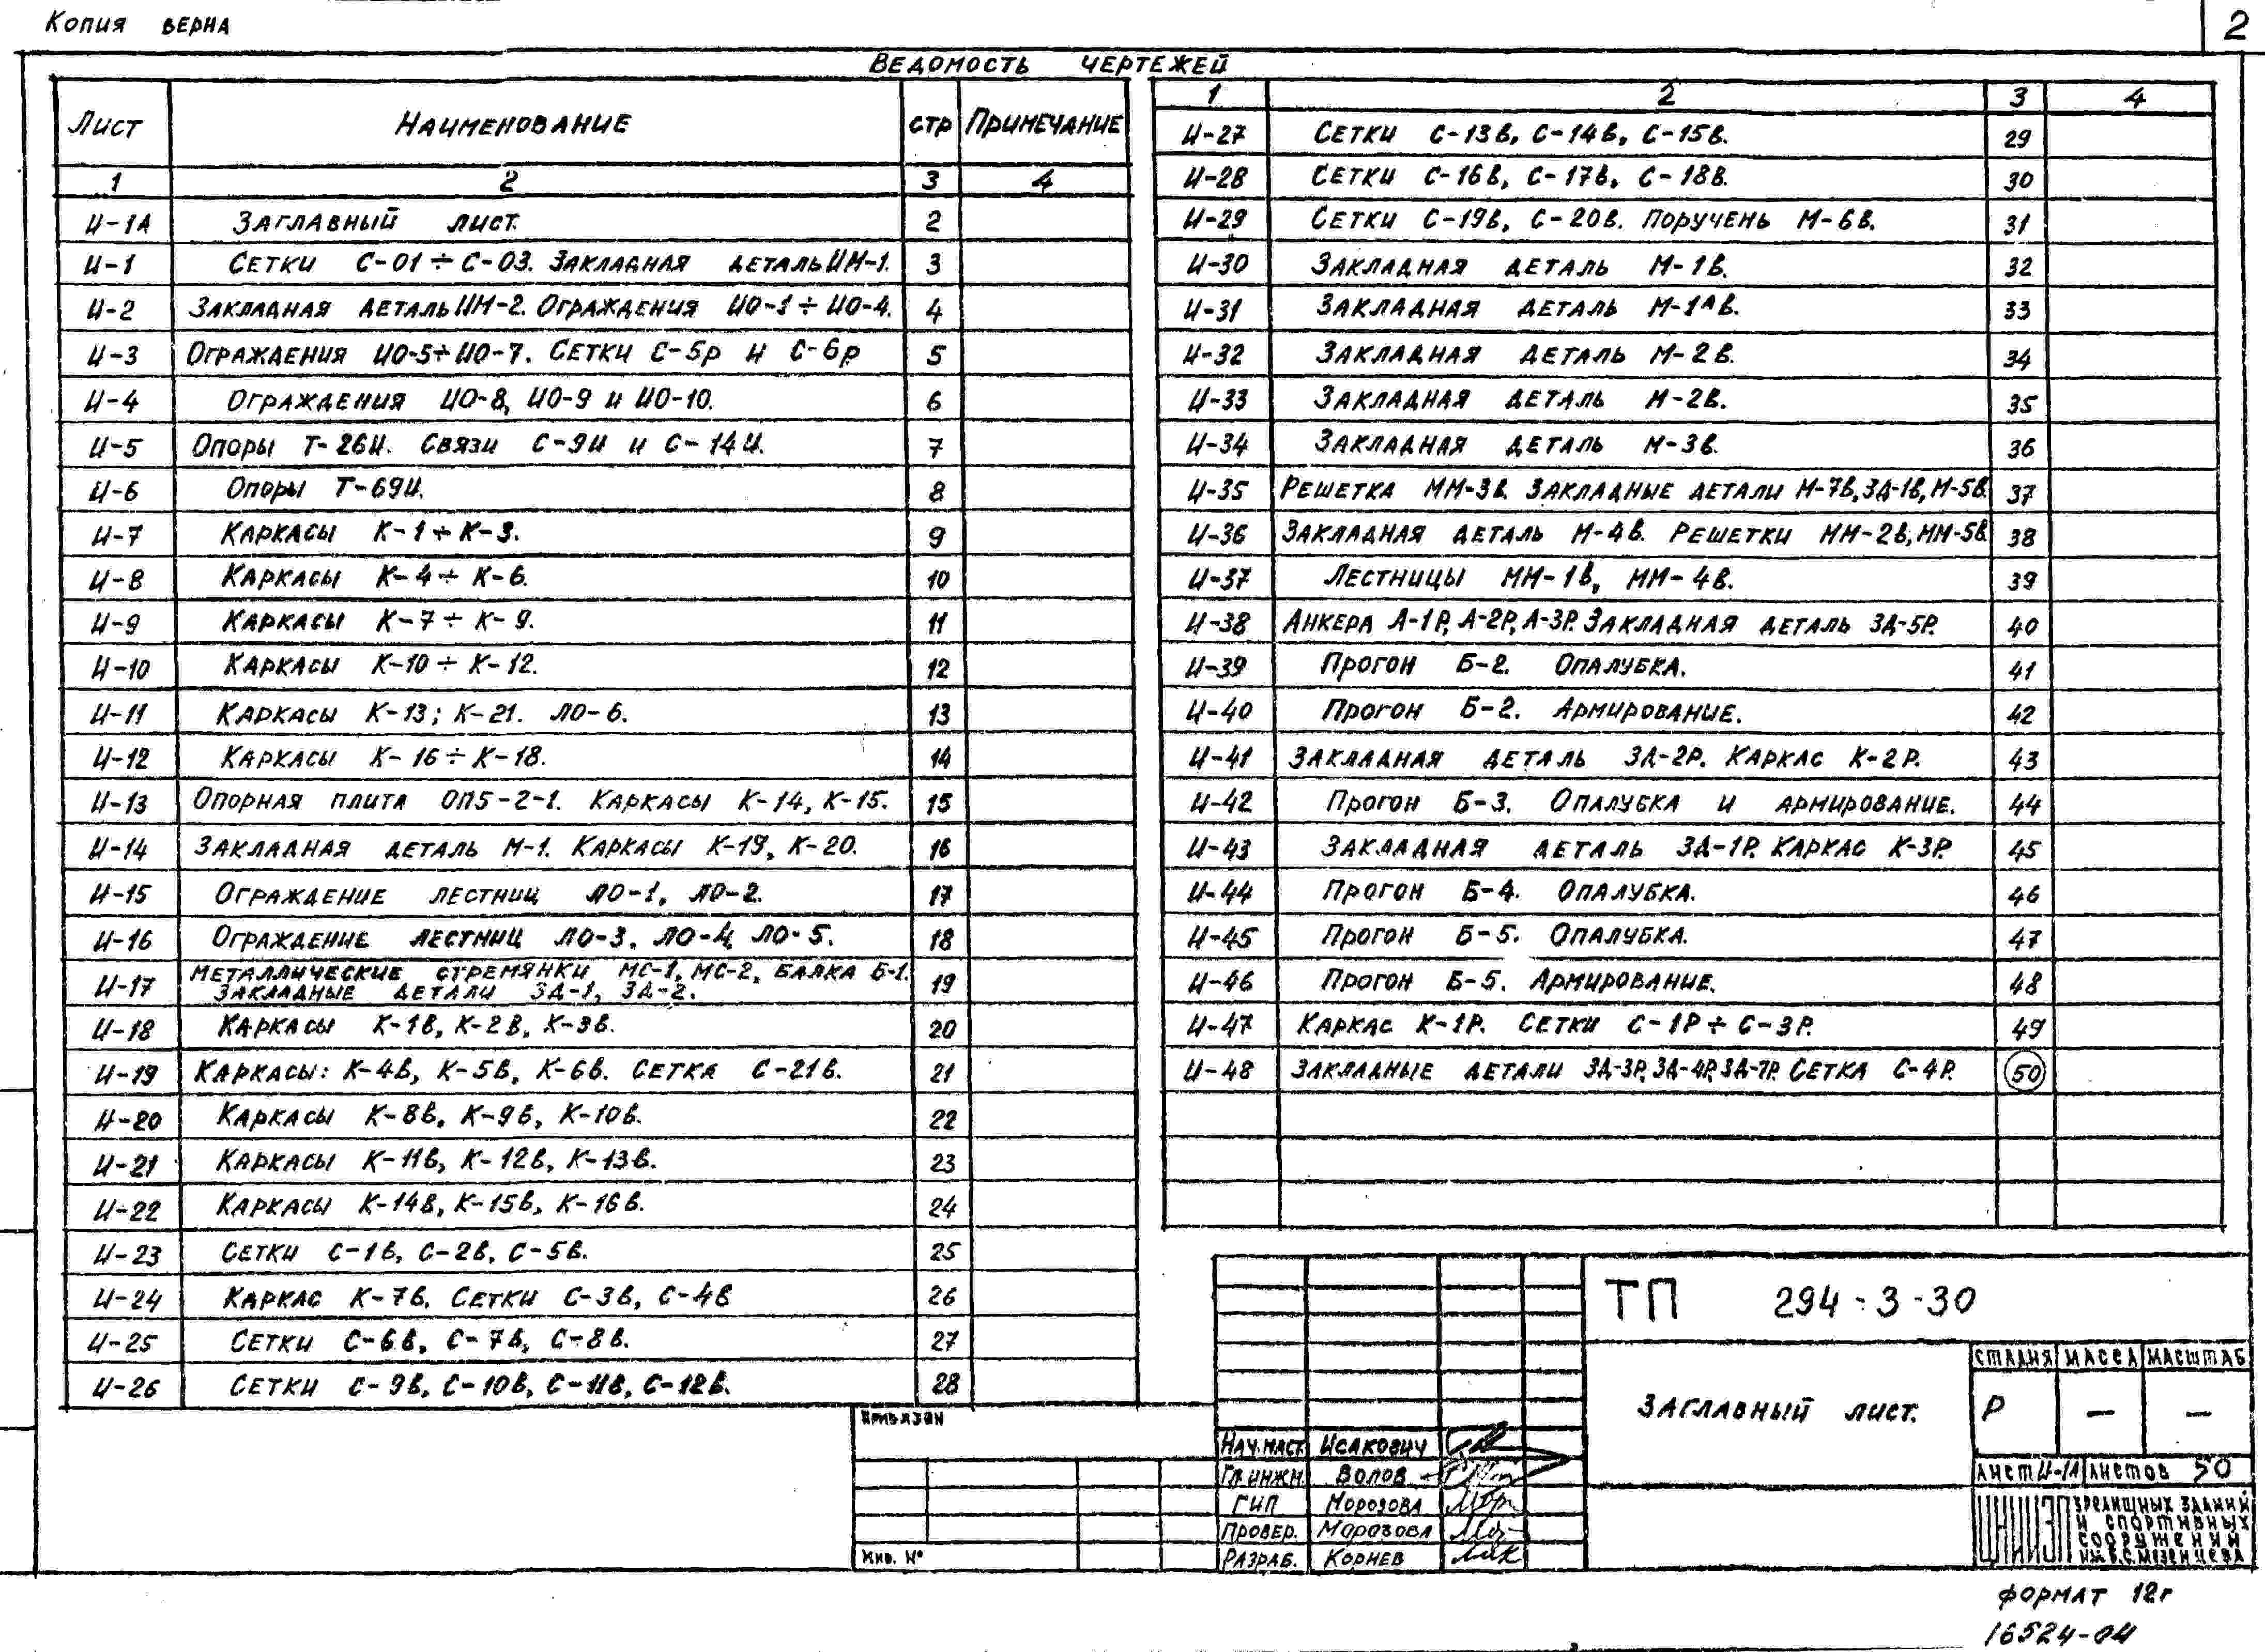 Копия верна
2
Ведомость чертежей
Лист Наименование стр Примечание
1 2 3 4
И-1А Заглавный лист. 2
И-1 Сетки С-01÷С-03. Закладная деталь ИМ-1. 3
И-2 Закладная деталь ИМ-2. Ограждения ИО-1÷ИО-4. 4
И-3 Ограждения ИО-5÷ИО-7. Сетки С-5р и С-6р 5
И-4 Ограждения ИО-8, ИО-9 и ИО-10. 6
И-5 Опоры Т-26И. Связи С-9И и С-14И. 7
И-6 Опоры Т-69И. 8
И-7 Каркасы К-1÷К-3. 9
И-8 Каркасы К-4÷К-6. 10
И-9 Каркасы К-7÷К-9. 11
И-10 Каркасы К-10÷К-12. 12
И-11 Каркасы К-13; К-21. ЛО-6. 13
И-12 Каркасы К-16÷К-18. 14
И-13 Опорная плита ОП5-2-1. Каркасы К-14, К-15. 15
И-14 Закладная деталь М-1. Каркасы К-19, К-20. 16
И-15 Ограждение лестниц ЛО-1, ЛО-2. 17
И-16 Ограждение лестниц ЛО-3, ЛО-4, ЛО-5. 18
И-17 Металлические стремянки МС-1, МС-2, балка Б-1. 19
Закладные детали ЗД-1, ЗД-2.
И-18 Каркасы К-1в, К-2в, К-3в. 20
И-19 Каркасы: К-4в, К-5в, К-6в. Сетка С-21в. 21
И-20 Каркасы К-8в, К-9в, К-10в. 22
И-21 Каркасы К-11в, К-12в, К-13в. 23
И-22 Каркасы К-14в, К-15в, К-16в. 24
И-23 Сетки С-1в, С-2в, С-5в. 25
И-24 Каркас К-7в. Сетки С-3в, С-4в 26
И-25 Сетки С-6в, С-7в, С-8в. 27
И-26 Сетки С-9в, С-10в, С-11в, С-12в. 28
1 2 3 4
И-27 Сетки С-13в, С-14в, С-15в. 29
И-28 Сетки С-16в, С-17в, С-18в. 30
И-29 Сетки С-19в, С-20в. Поручень М-6в. 31
И-30 Закладная деталь М-1в. 32
И-31 Закладная деталь М-1Ав. 33
И-32 Закладная деталь М-2в. 34
И-33 Закладная деталь М-2в. 35
И-34 Закладная деталь М-3в. 36
И-35 Решетка ММ-3в. Закладные детали М-7в, ЗД-1в, М-5в. 37
И-36 Закладная деталь М-4в. Решетки ММ-2в, ММ-5в. 38
И-37 Лестницы ММ-1в, ММ-4в. 39
И-38 Анкера А-1Р, А-2Р, А-3Р. Закладная деталь ЗД-5Р. 40
И-39 Прогон Б-2. Опалубка. 41
И-40 Прогон Б-2. Армирование. 42
И-41 Закладная деталь ЗД-2Р. Каркас К-2Р. 43
И-42 Прогон Б-3. Опалубка и армирование. 44
И-43 Закладная деталь ЗД-1Р. Каркас К-3Р. 45
И-44 Прогон Б-4. Опалубка. 46
И-45 Прогон Б-5. Опалубка. 47
И-46 Прогон Б-5. Армирование. 48
И-47 Каркас К-1Р. Сетки С-1Р÷С-3Р. 49
И-48 Закладные детали ЗД-3Р, ЗД-4Р, ЗД-7Р. Сетка С-4Р. 50
Привязан
Инв. №
Нач. маст. Исакович
Гл. инжн. Волов
ГИП Морозова
Провер. Морозова
Разраб. Корнев
ТП 294-3-30
Заглавный лист.
Стадия Масса Масштаб
Р – –
Лист И-1А Листов 50
ЦНИИЭП зрелищных зданий
и спортивных
сооружений
им. Б.С. Мезенцева
Формат 12г
16524-04